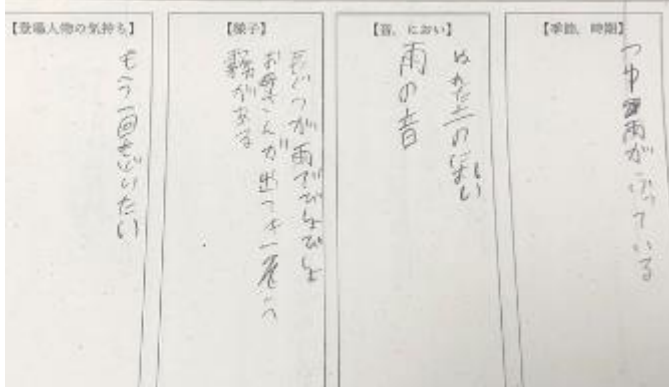 【季節、時期】
つゆ 雨がふっている
【音、におい】
ぬれた土のにおい
雨の音
【様子】
長ぐつが雨でびしょびしょ
お母さんが出てき
霧がある
【登場人物の気持ち】
もう一回